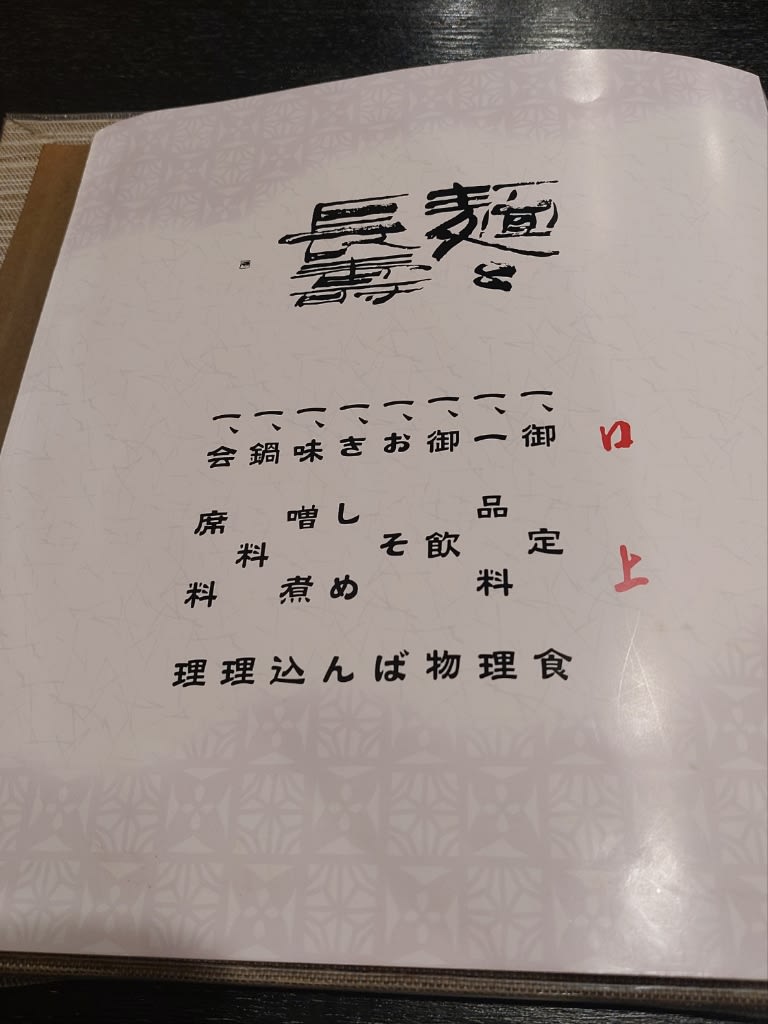 麺と
長寿
口上
一、御定食
一、一品料理
一、御飲物
一、おそば
一、きしめん
一、味噌煮込
一、鍋料理
一、会席料理